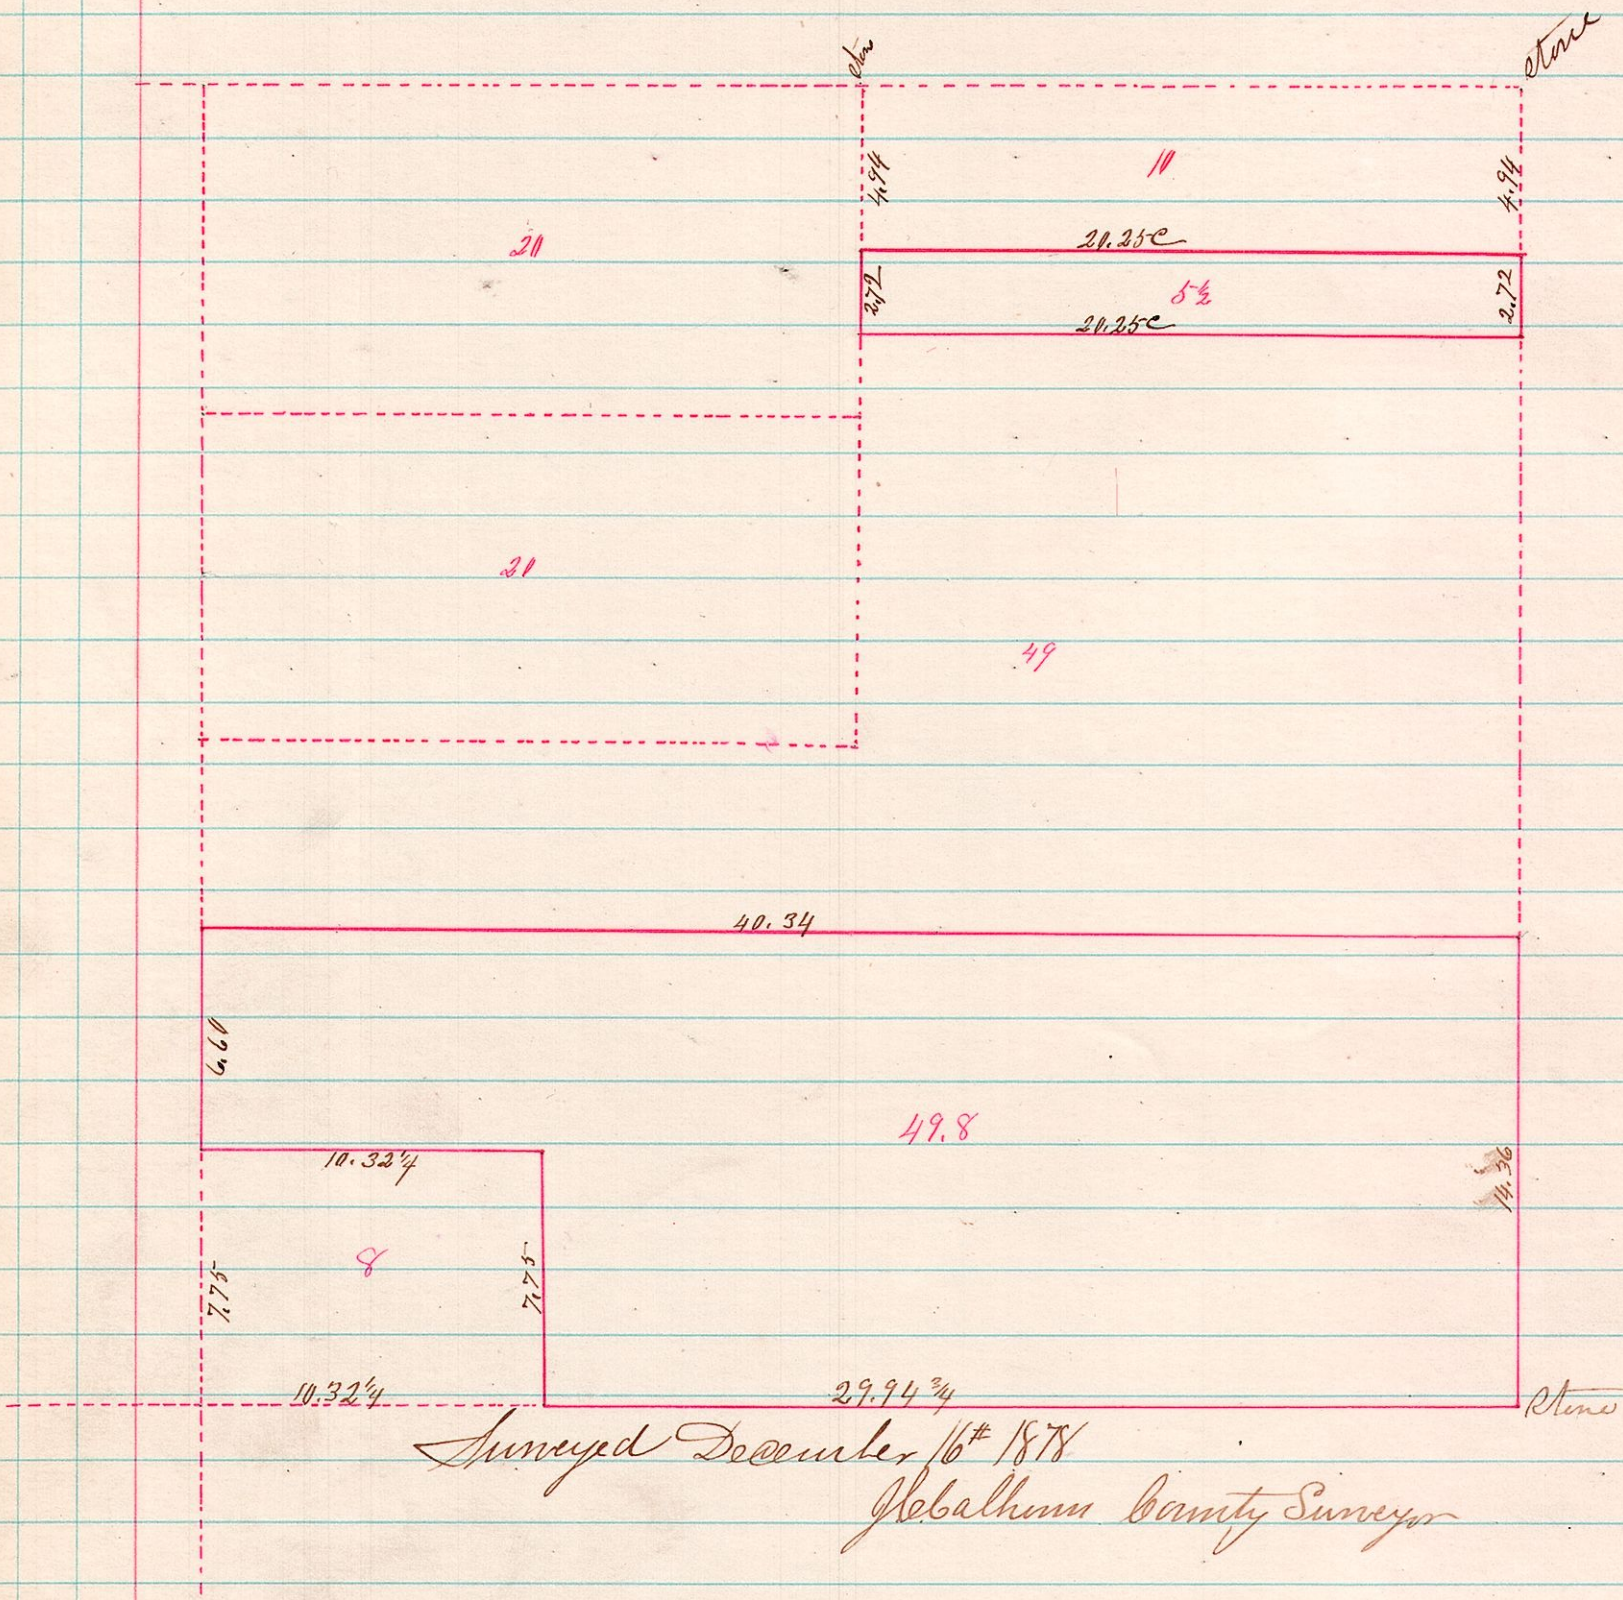 Stone
Stone
4.94
10
4.94
20
20.25C
2.72
5½
2.72
20.25C
20
49
40.34
6.60
49.8
10.32¼
14.36
8
7.75
7.75
10.32¼
29.94¾
Stone
Surveyed December 16th 1878
Calhoun County Surveyor